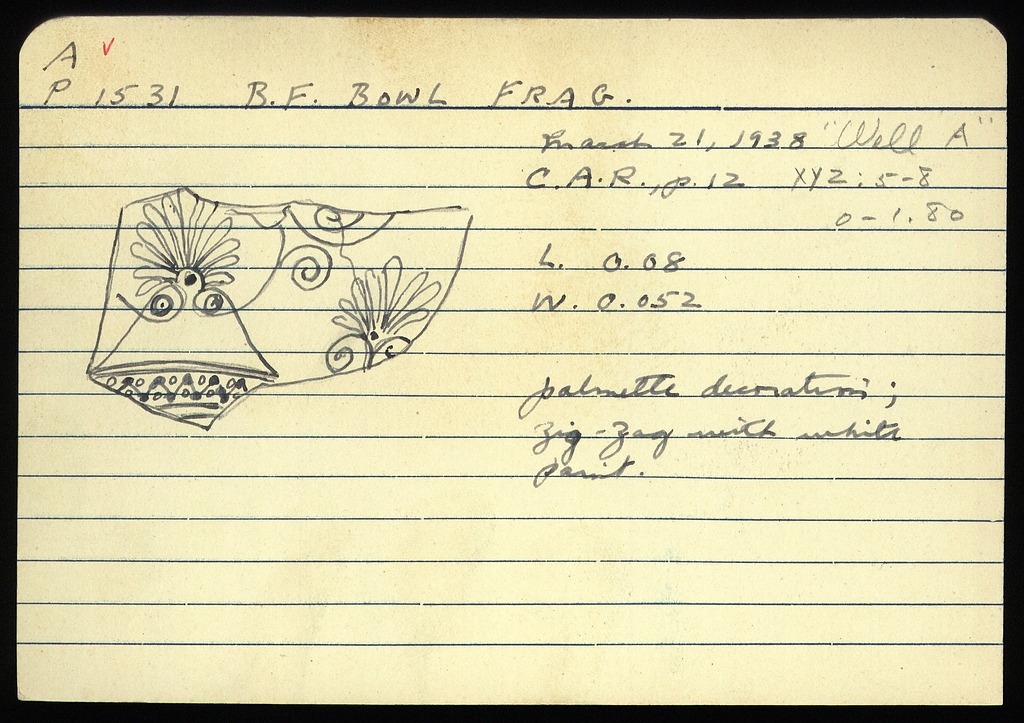 A ✓
P 1531 B.F. BOWL FRAG.
March 21, 1938 "Well A"
C.A.R., p. 12 XYZ: 5-8
0-1.80
L. 0.08
W. 0.052
palmette decoration;
zig-zag with white
paint.